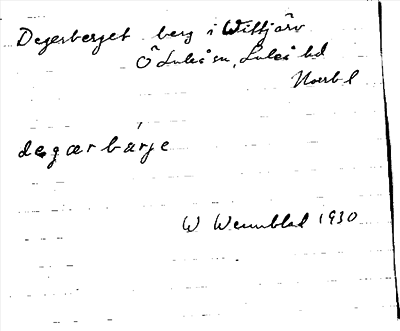 Degerberget berg i Wittjärv
Ö Luleå sn, Luleå td
Norrb l
degærbárje
W Wennblad 1930